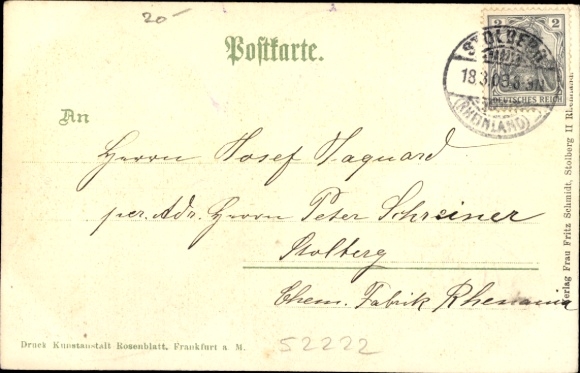 20-
Postkarte.
2 2
DEUTSCHES REICH
STOLBERG
18.3.09.8-9N
(RHEINLAND)
An
Herrn Josef Jaquard
per. Adr. Herrn Peter Schreiner
Stolberg
Chem. Fabrik Rhenania
Druck Kunstanstalt Rosenblatt, Frankfurt a M.
52222
Verlag Frau Fritz Schmidt, Stolberg II Rheinland.